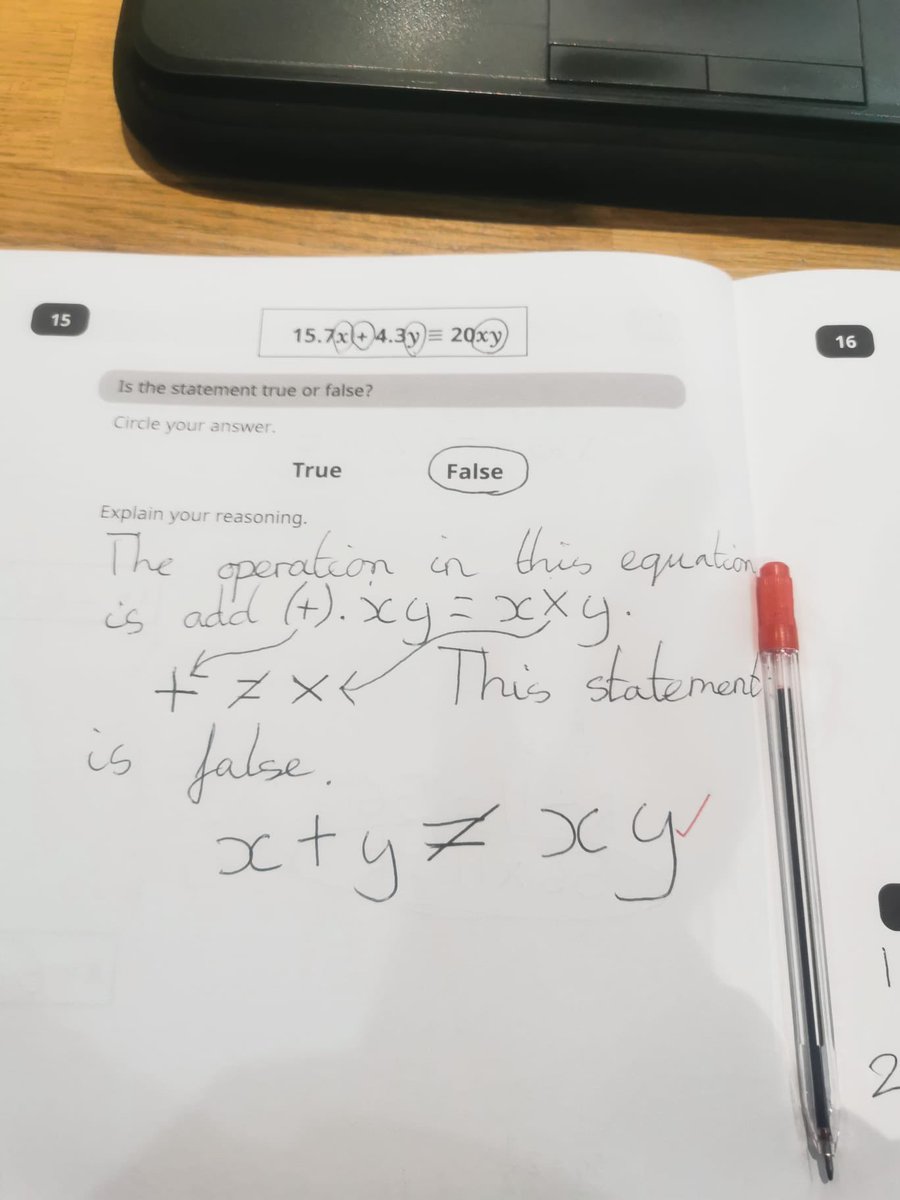 15
15.7x + 4.3y ≡ 20xy
16
Is the statement true or false?
Circle your answer.
True False
Explain your reasoning.
The operation in this equation
is add (+). xy = x × y.
+ ≠ × This statement
is false.
x + y ≠ xy
1
2